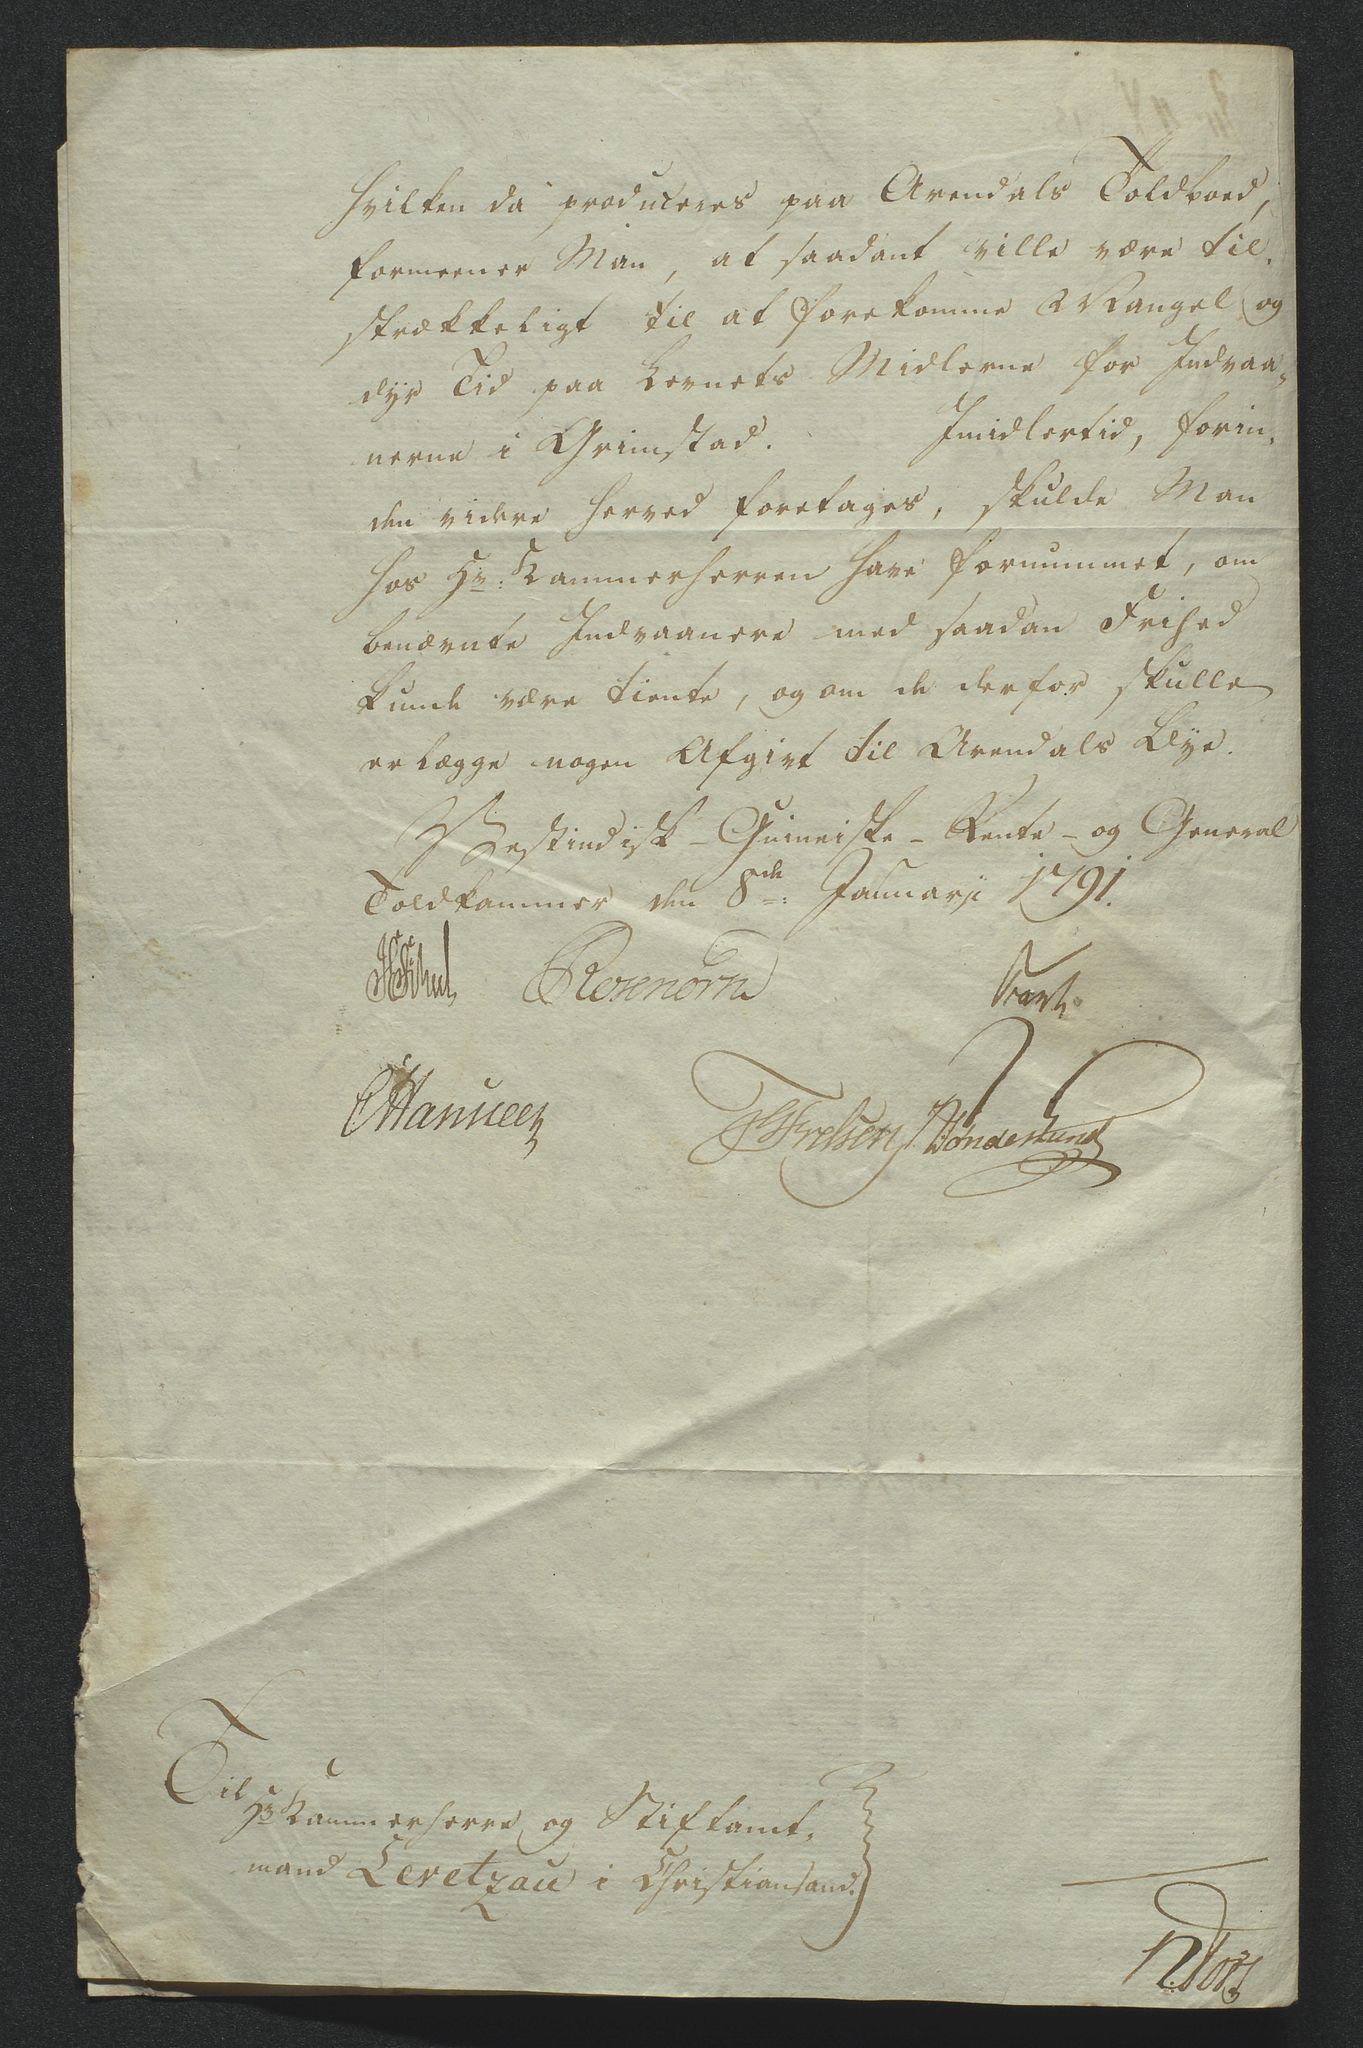 hvilken da produceres paa Arendals Toldboed,
formeener Man, at saadant ville være til-
strækkeligt til at forekomme Mangel og
dyr Tid paa Levnets Midlerne for Indvaa-
nerne i Grimstad. Imidlertid, forin-
den videre herved foretages, skulde Man
hos Hr: Kammerherren have fornummet, om
benævnte Indvaanere med saadan Frihed
kunde være tiente, og om de derfor skulle
erlægge nogen Afgivt til Arendals Bye.
Westindisk-Guineiske-Rente- og General
Toldkammer den 8de: Januarji 1791.
Rosenørn
Til
Hr Kammerherre og Stiftamt-
mand Levetzau i Christiansand.